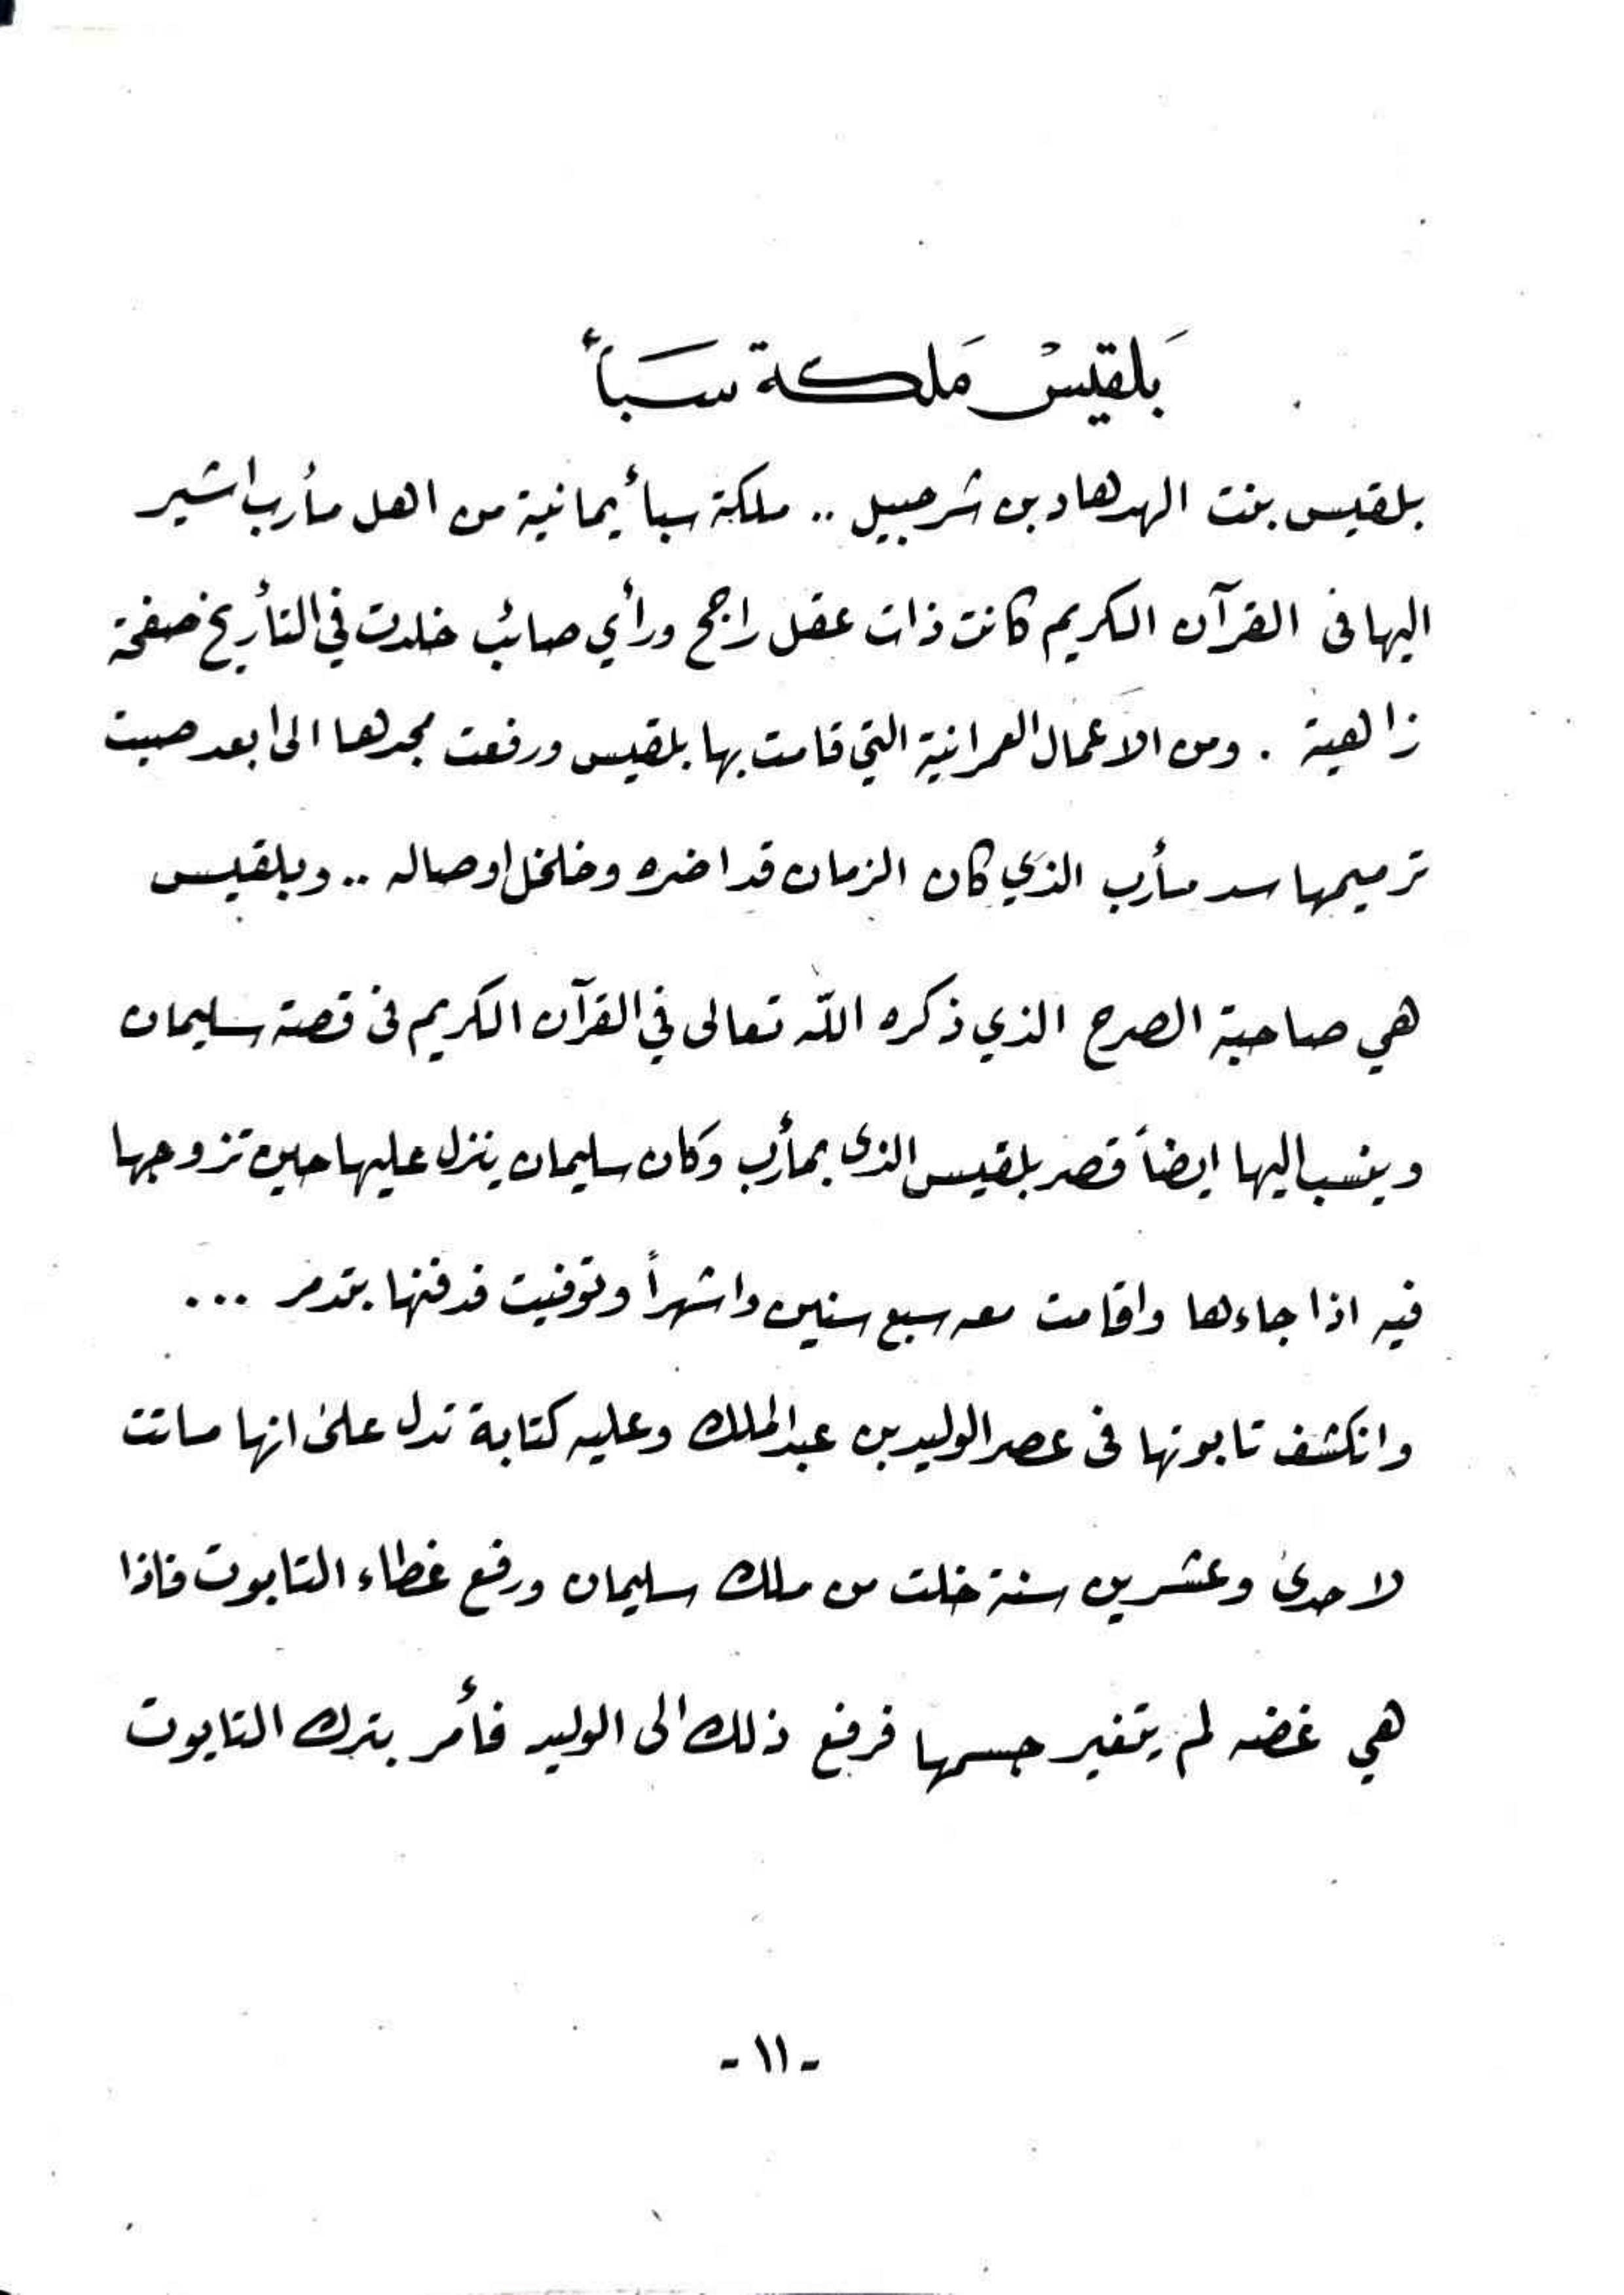 بَلقيسْ مَلكة سَبأ
بلقيس بنت الهدهاد بن شرحبيل .. ملكة سبأ يمانية من اهل مأرب اشير
اليها فى القرآن الكريم كانت ذات عقل راجح ورأي صائب خلدت في التأريخ صفحة
زاهية . ومن الاعمال العمرانية التي قامت بها بلقيس ورفعت مجدها الى ابعد صيت
ترميمها سد مأرب الذي كان الزمان قد اضره وخلخل اوصاله .. وبلقيس
هي صاحبة الصرح الذي ذكره الله تعالى في القرآن الكريم فى قصة سليمان
وينسب اليها ايضاً قصر بلقيس الذى بمأرب وكان سليمان ينزل عليها حين تزوجها
فيه اذا جاءها واقامت معه سبع سنين واشهراً وتوفيت فدفنها بتدمر ...
وانكشف تابوتها فى عصر الوليد بن عبدالملك وعليه كتابة تدل على انها ماتت
لاحدى وعشرين سنة خلت من ملك سليمان ورفع غطاء التابوت فاذا
هي غضه لم يتغير جسمها فرفع ذلك الى الوليد فأمر بترك التابوت
- ١١ -